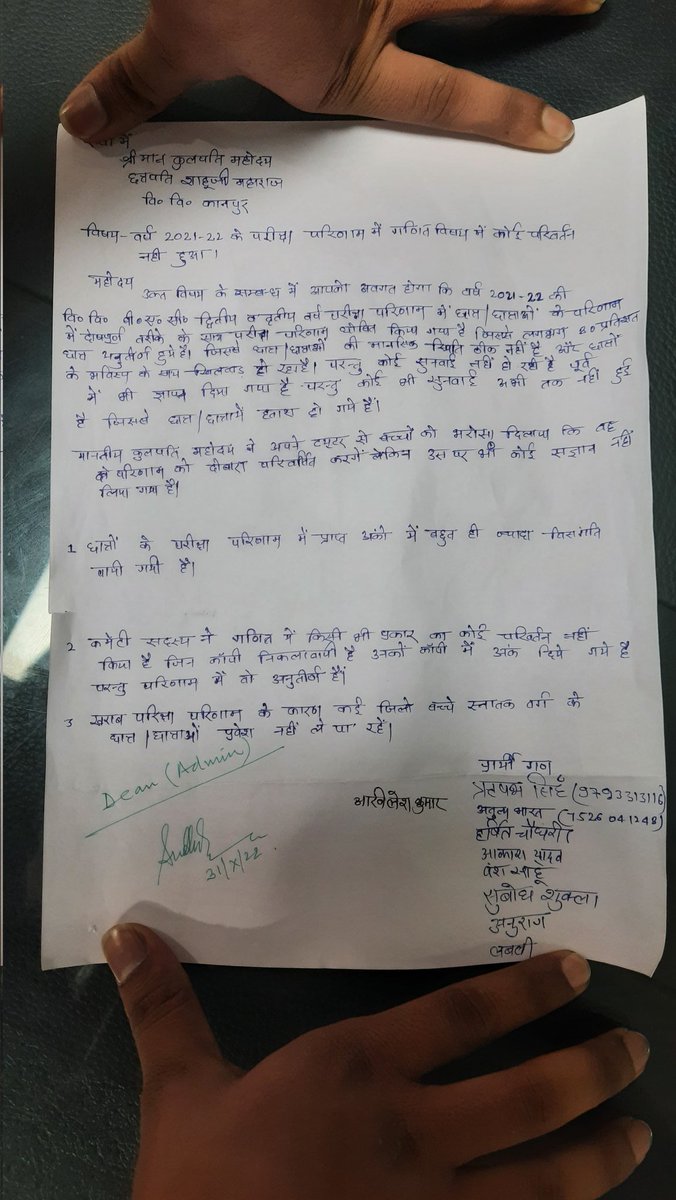 सेवा में
श्रीमान कुलपति महोदय
छत्रपति शाहूजी महाराज
वि० वि० कानपुर
विषय- वर्ष 2021-22 के परीक्षा परिणाम में गणित विषय में कोई परिवर्तन
नही हुआ।
महोदय
उक्त विषय के सम्बन्ध में आपको अवगत होगा कि वर्ष 2021-22 की
वि० वि० बी० एस० सी० द्वितीय व तृतीय वर्ष परीक्षा परिणाम में छात्र/छात्राओं के परिणाम
में दोषपूर्ण तरीके के साथ परीक्षा परिणाम घोषित किया गया है जिसमे लगभग 80 प्रतिशत
छात्र अनुतीर्ण हुये है। जिससे छात्र/छात्राओं की मानसिक स्थिति ठीक नहीं है और छात्रों
के भविष्य के साथ खिलवाड़ हो रहा है। परन्तु कोई सुनवाई नहीं हो रही है पूर्व
में भी ज्ञापन दिया गया है परन्तु कोई भी सुनवाई अभी तक नहीं हुई
है जिससे छात्र/छात्रायें हताश हो गये हैं।
माननीय कुलपति महोदय ने अपने ट्यूटर से बच्चों को भरोसा दिलाया कि वह
के परिणाम को दोबारा परिवर्तित करेंगें लेकिन उस पर भी कोई संज्ञान नहीं
लिया गया है।
1 छात्रों के परीक्षा परिणाम में प्राप्त अंको में बहुत ही ज्यादा विसंगति
पायी गयी है।
2 कमेटी सदस्य ने गणित में किसी भी प्रकार का कोई परिवर्तन नहीं
किया है जिन कॉपी निकलवायी है उनको कॉपी में अंक दिये गये है
परन्तु परिणाम में वो अनुतीर्ण हैं।
3 खराब परिक्षा परिणाम के कारण कई जिलो बच्चे स्नातक वर्ग के
छात्र/छात्राओं प्रवेश नहीं ले पा रहें।
Dean (Admin)
31/X/22
प्रार्थी गण
अखिलेश कुमार
सिंह (9793313116)
अतुल्य भारत (7526041248)
हर्षित चौधरी
आकाश यादव
वंश साहू
सुबोध शुक्ला
अनुराग
लवली